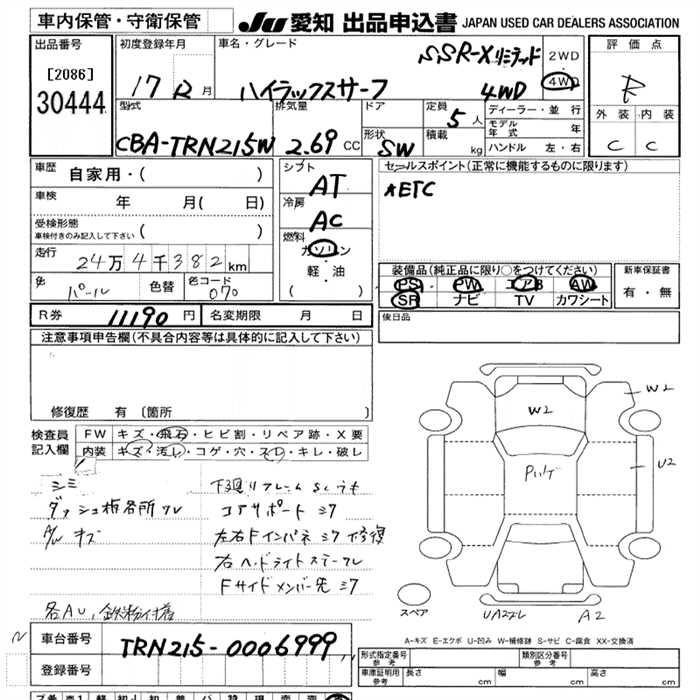 車内保管・守衛保管
JU 愛知 出品申込書 JAPAN USED CAR DEALERS ASSOCIATION
出品番号
[2086]
30444
初度登録年月
17 年 12 月
車名・グレード
SSR-Xリミテッド
ハイラックスサーフ 4WD
2WD
4WD
評価点
外装 内装
C C
型式
CBA-TRN215W
排気量
2.69 CC
ドア
形状
SW
定員
5 人
積載
kg
ディーラー・並行
モデル年式 年
ハンドル 左・右
車歴
自家用・( )
車検
年 月( 日)
受検形態
車検付きのみ記入して下さい ( )
走行
24万4千382 km
色
パール
色替
色コード
070
シフト
AT
冷房
AC
燃料
ガソリン
軽・油
( )
セールスポイント(正常に機能するものに限ります)
★ETC
装備品(純正品に限り○をつけてください)
PS PW エアB AW
SR ナビ TV カワシート
新車保証書
有・無
R券
11190 円
名変期限 月 日
後日品
注意事項申告欄(不具合内容等は具体的に記入して下さい)
修復歴 有 〔箇所 〕
検査員記入欄
FW キズ・飛石・ヒビ割・リペア跡・X要
内装 キズ・汚れ・コゲ・穴・スレ・キレ・破レ
シミ
ダッシュ板各所ワレ
A/W キズ
下廻リフレームSシウキ
コアサポートミワ
左右Fインパネミワ修復
右ヘッドライトステーワレ
Fサイドメンバー先ミワ
各AU、鉄粉付着
W2
W2
U2
スペア
UA2スレ
A2
A-キズ E-エクボ U-凹み W-補修跡 S-サビ C-腐食 XX-交換済
車台番号
TRN215-0006999
登録番号
形式指定番号 参考
類別区分番号 参考
車庫証明用 参考
長さ cm
幅 cm
高さ cm